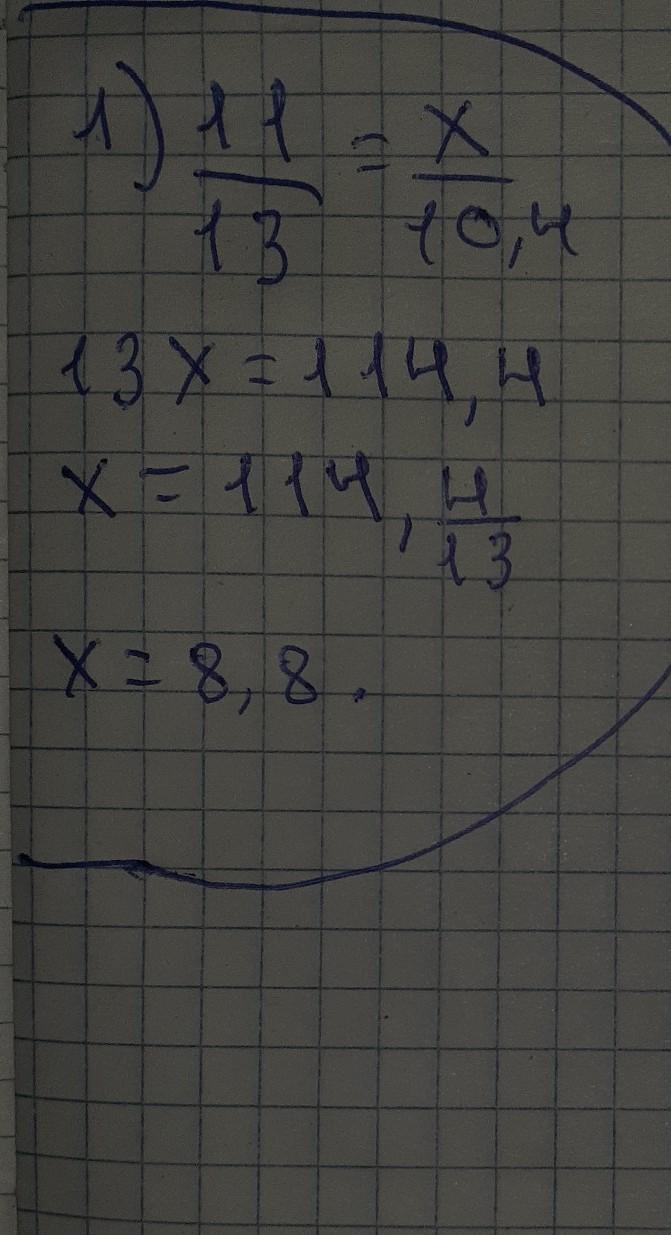 1) 11/13 = x/10,4
13x = 114,4
x = 114,4/13
x = 8,8.